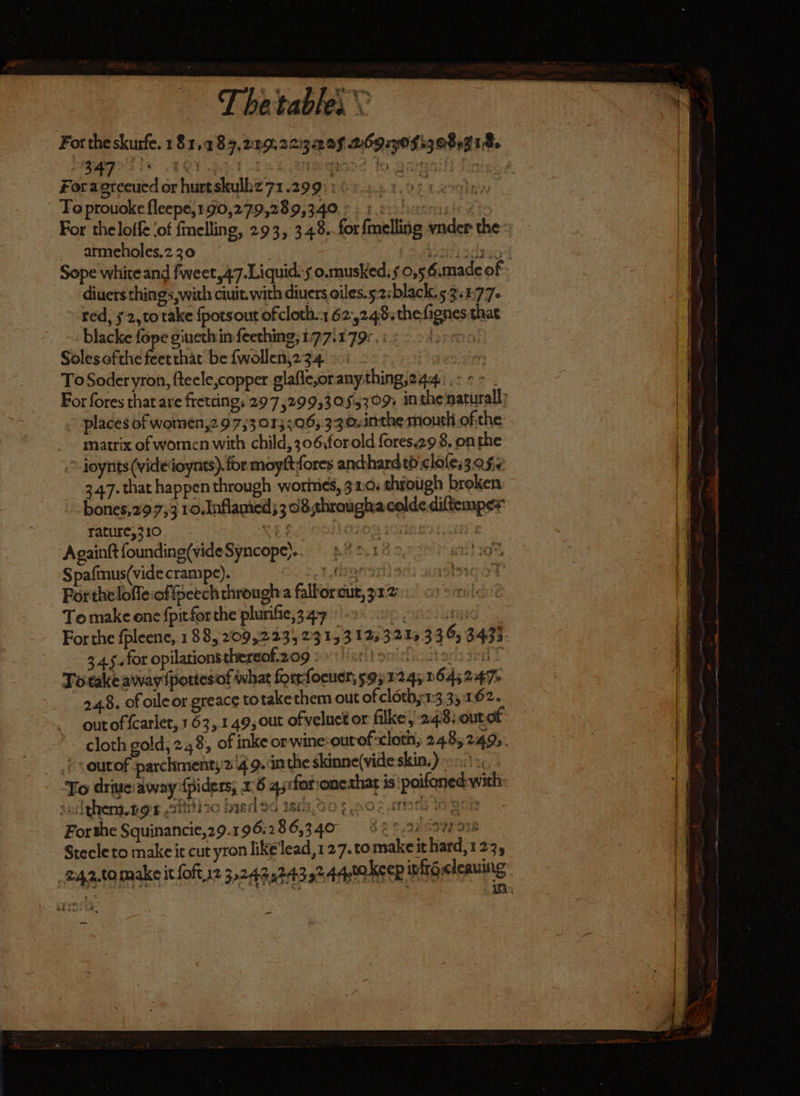 The tables
For the skurfe. 181,189,
347
For a greeued or hurt skull. 271.299
To prouoke sleepe, 190,279,289,340
For the losse of smelling, 293, 348. for smelling vnder the
armeholes. 230
Sope white and sweet, 47. Liquid. 50. musked. 50,56. made of
diuers things, with ciuit. with diuers oiles. 52. black. 53.177.
red, 52, to take spots out of cloth. 162, 248, the signes that
blacke sope giueth in seething, 177.179.
Soles of the feet that be swollen, 234
To Soder yron, steele, copper glasse, or any thing, 244.
For sores that are fretting, 297,299,305,309, in the naturall
places of women, 297,301,306, 330. in the mouth of the
matrix of women with child, 306, for old sores, 298. on the
ioynts (vide ioynts). for moyst sores and hard to close, 305.
347. that happen through wormes, 310. through broken
bones, 297,310. Inflamed, 308, through a colde distempe-
rature, 310
Against sounding (vide Syncope).
Spasmus (vide crampe).
For the losse of speech through a fall or cut, 312
To make one spit for the plurisie, 347
For the spleene, 188, 209, 223, 231, 312, 321, 336, 343.
345. for opilations thereof. 209
To take away spottes of what sort soeuer, 59, 124, 164, 247.
248. of oile or greace to take them out of cloth, 133, 162.
out of scarlet, 163, 149, out of veluet or silke, 248. out of
cloth gold, 248, of inke or wine out of cloth, 248, 249,
out of parchment, 249. in the skinne (vide skin.)
To driue away spiders, 164, for one that is poisoned with
them.
For the Squinancie, 29.196.286,340
Steele to make it cut yron like lead, 127. to make it hard, 123,
242. to make it soft, 123, 242, 243, 244, to keep it from cleauing
in